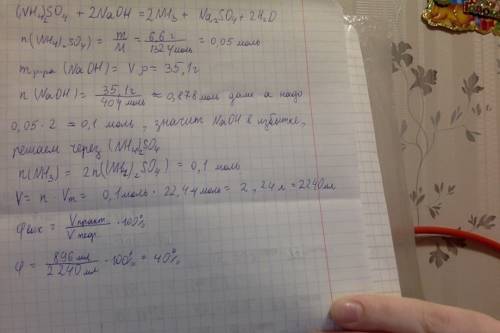 (NH₄)₂SO₄ + 2NaOH = 2NH₃ + Na₂SO₄ + 2H₂O
n((NH₄)₂SO₄) = m/M = 6,6 г/132 г/моль = 0,05 моль
m р-ра (NaOH) = V·ρ = 35,1 г
n (NaOH) = 35,1 г/40 г/моль ≈ 0,878 моль дано а надо
0,05·2 = 0,1 моль, значит NaOH в избытке,
решаем через (NH₄)₂SO₄
n(NH₃) = 2n((NH₄)₂SO₄) = 0,1 моль
V = n · Vm = 0,1 моль · 22,4 л/моль = 2,24 л = 2240 мл
φ вых = Vпракт./Vтеор. · 100%
φ = 896 мл/2240 мл · 100% = 40%